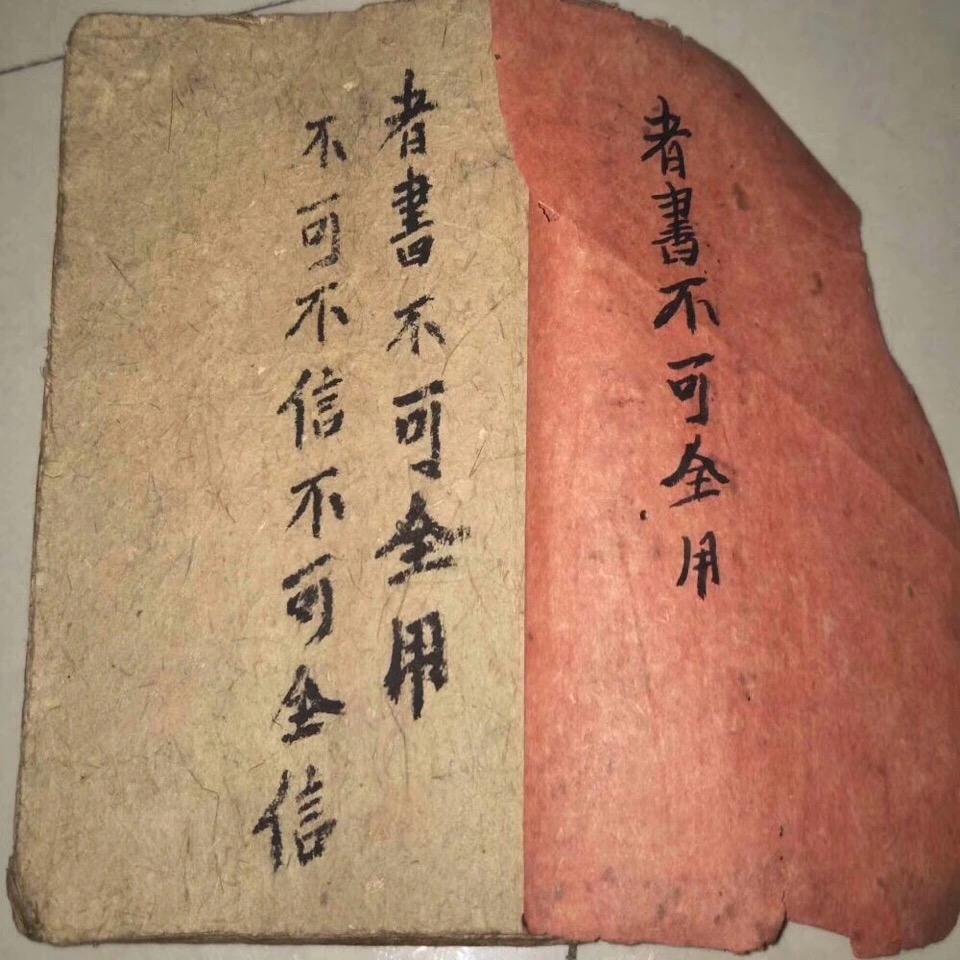 者書不可全用
者書不可全用
不可不信不可全信